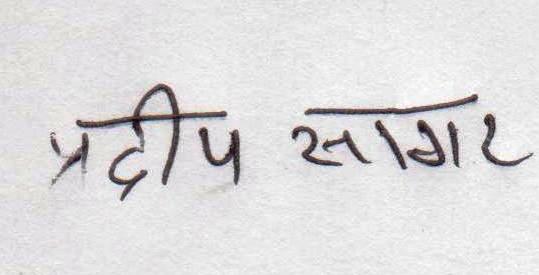 प्रदीप सागर